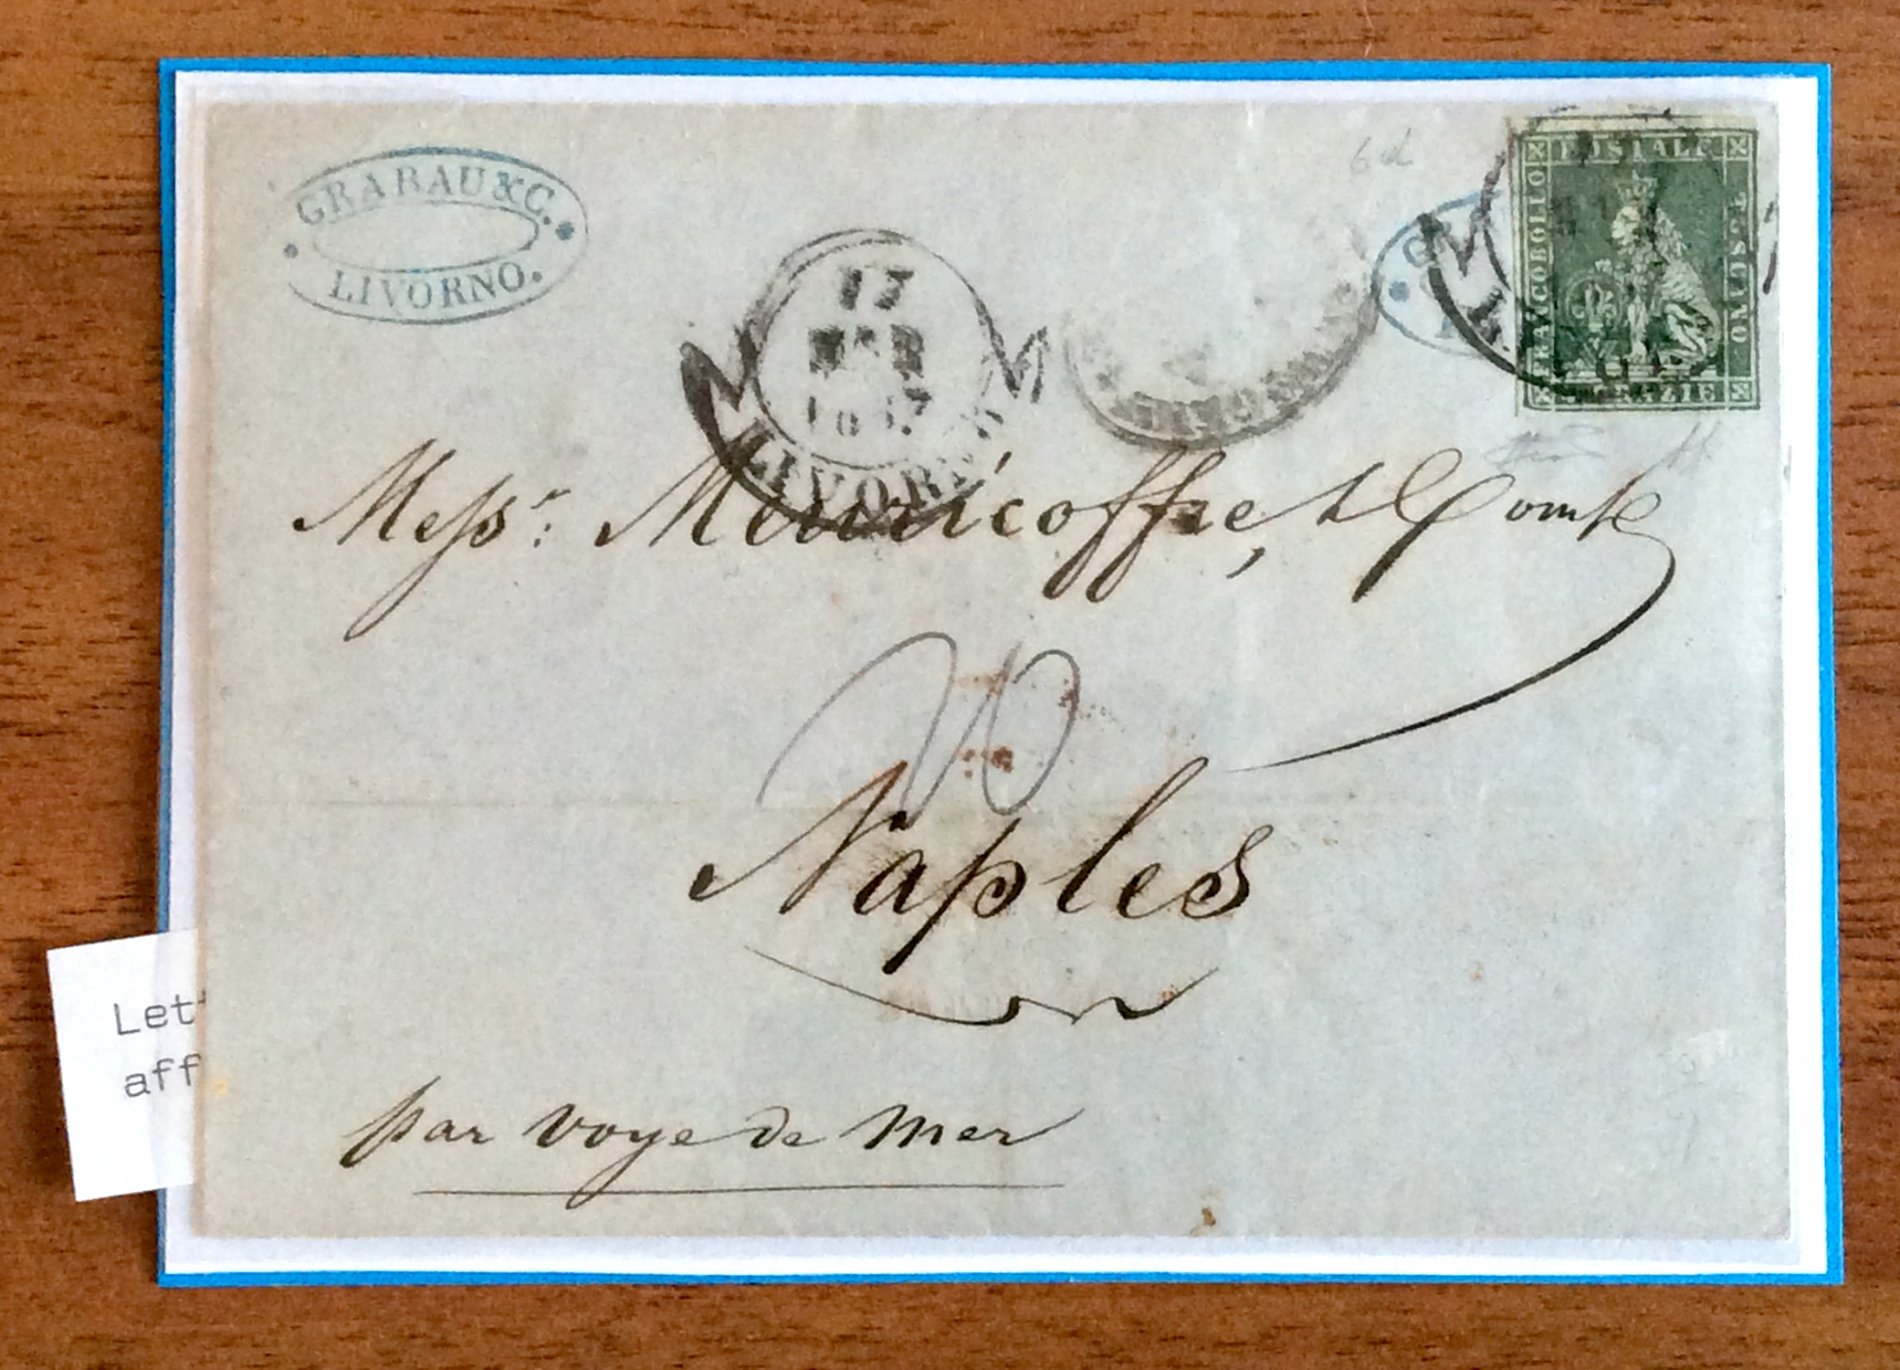 GRABAU & C.
LIVORNO.
17
MAR
1857
LIVORNO
6d
FRANCOBOLLO
POSTALE
TOSCANO
GRAZIE
Messr. Meuricoffre, & Comp
20
Naples
par voye de Mer
Let
aff